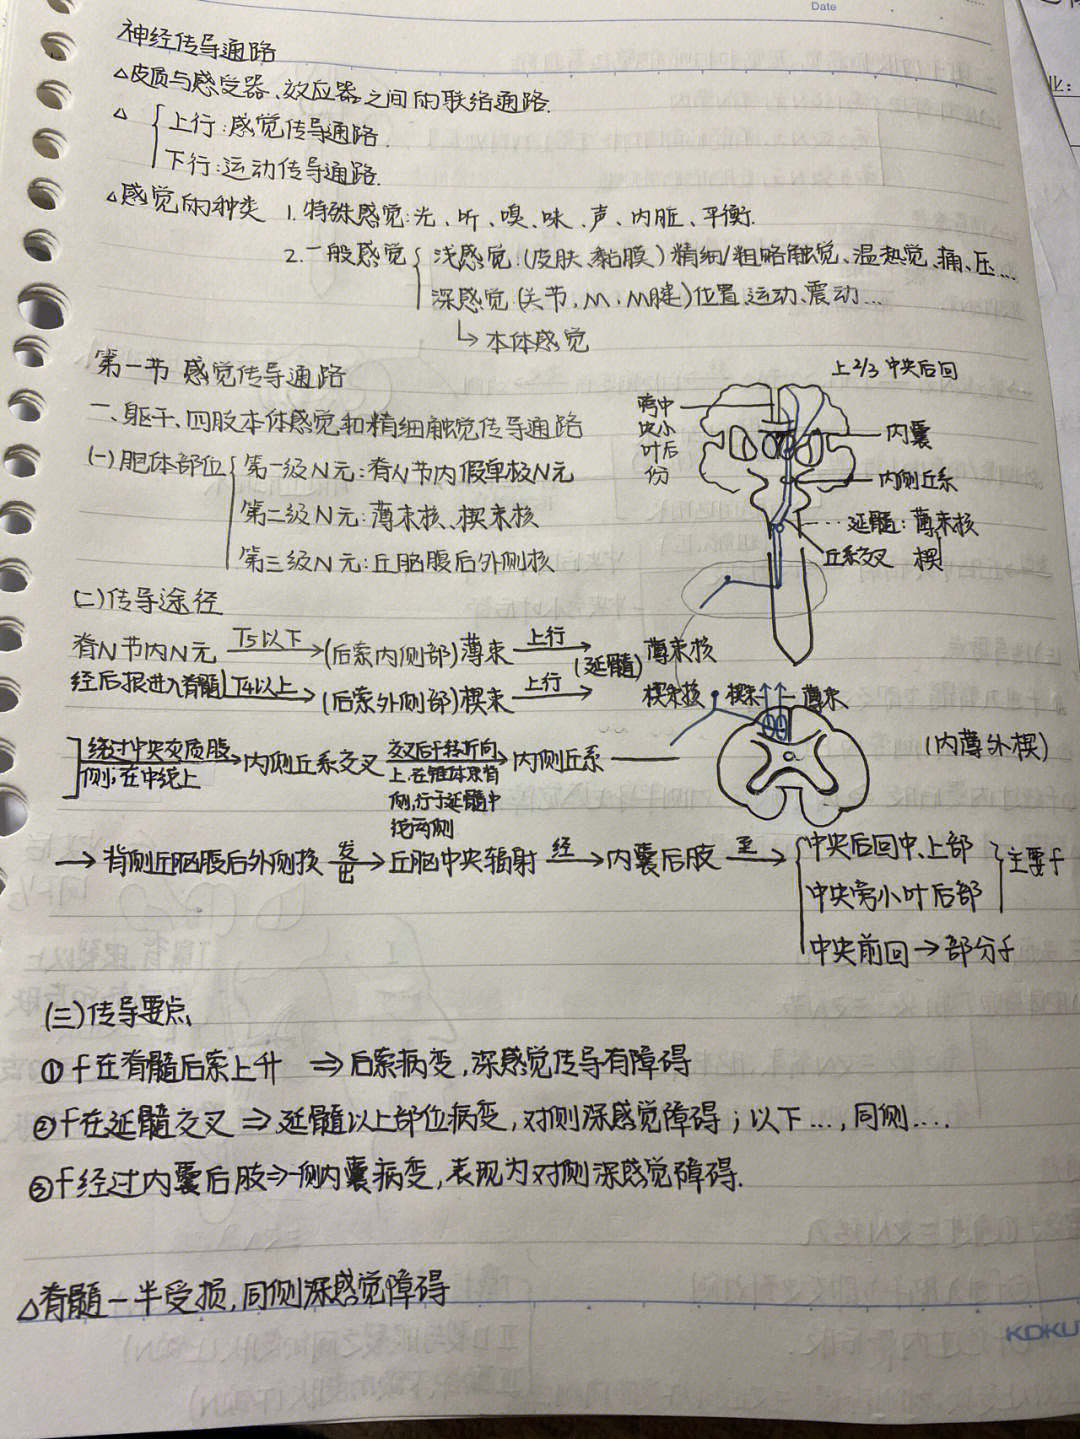 Date
神经传导通路
△皮质与感受器、效应器之间的联络通路.
△ { 上行:感觉传导通路.
下行:运动传导通路.
△感觉的种类 1.特殊感觉:光、听、嗅、味、声、内脏、平衡.
2.一般感觉 { 浅感觉:(皮肤、黏膜)精细/粗略触觉、温热觉、痛、压...
深感觉(关节、M、M腱)位置、运动、震动...
↳本体感觉
第一节 感觉传导通路
上2/3 中央后回
一、躯干、四肢本体感觉和精细触觉传导通路
内囊
(一)胞体部位 { 第一级N元:脊N节内假单极N元
内侧丘系
第二级N元:薄束核、楔束核
...延髓:薄束核
楔
丘系交叉
第三级N元:丘脑腹后外侧核
(二)传导途径
脊N节内N元 T5以下→(后索内侧部)薄束 上行→ (延髓) 薄束核
经后根进入脊髓 T4以上→(后索外侧部)楔束 上行→ 楔束核
楔束 薄束
(内薄外楔)
绕过中央灰质腹侧,在中线上→内侧丘系交叉 交叉后干转折向上,在锥体束背侧,行于延髓中线两侧→内侧丘系
→背侧丘脑腹后外侧核 发出→丘脑中央辐射 经→内囊后肢 至→ { 中央后回中、上部
中央旁小叶后部 } 主要f
中央前回→部分f
(三)传导要点
①f在脊髓后索上升 ⇒后索病变,深感觉传导有障碍
②f在延髓交叉⇒延髓以上部位病变,对侧深感觉障碍;以下...,同侧....
③f经过内囊后肢⇒一侧内囊病变,表现为对侧深感觉障碍.
△脊髓一半受损,同侧深感觉障碍
KOKU